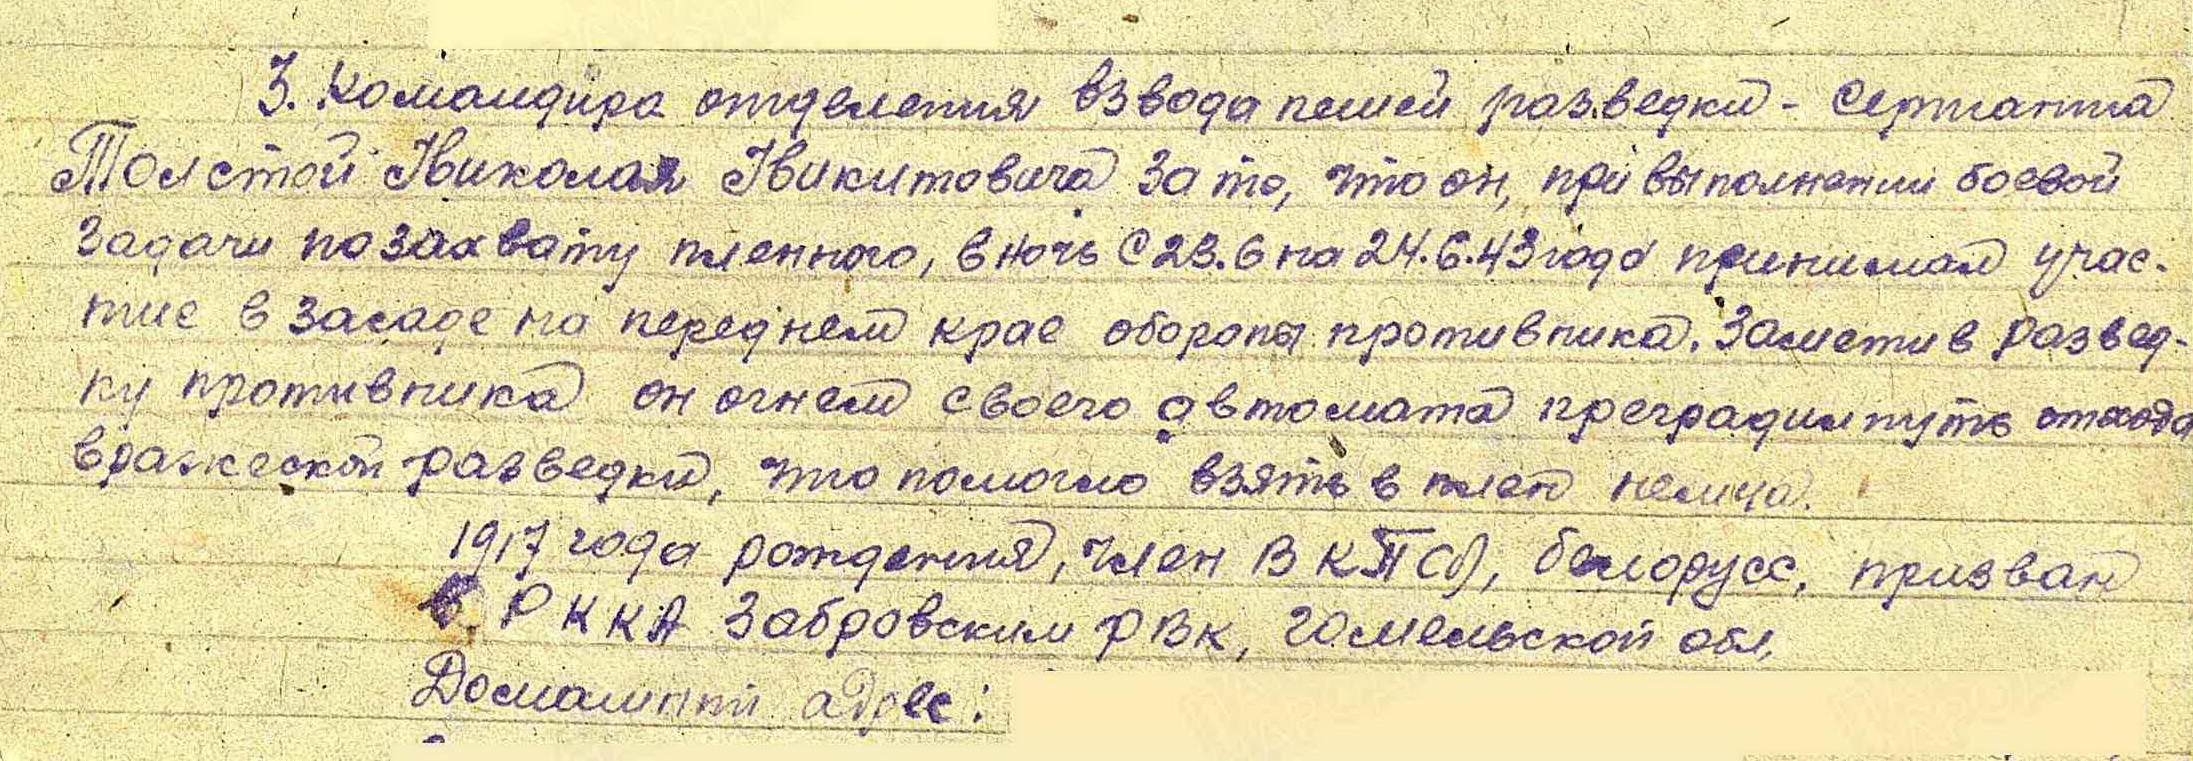 3. Командира отделения взвода пешей разведки - Сержанта
Толстой Николая Никитовича за то, что он, при выполнении боевой
задачи по захвату пленного, в ночь с 23.6 на 24.6.43 года принимал учас-
тие в засаде на переднем крае обороны противника. Заметив развед-
ку противника он огнем своего автомата преградил путь отхода
вражеской разведки, что помогло взять в плен немца.
1917 года рождения, член ВКП(б), белорусс, призван
в РККА Забровским РВК, Гомельской обл,
Домашний адрес: